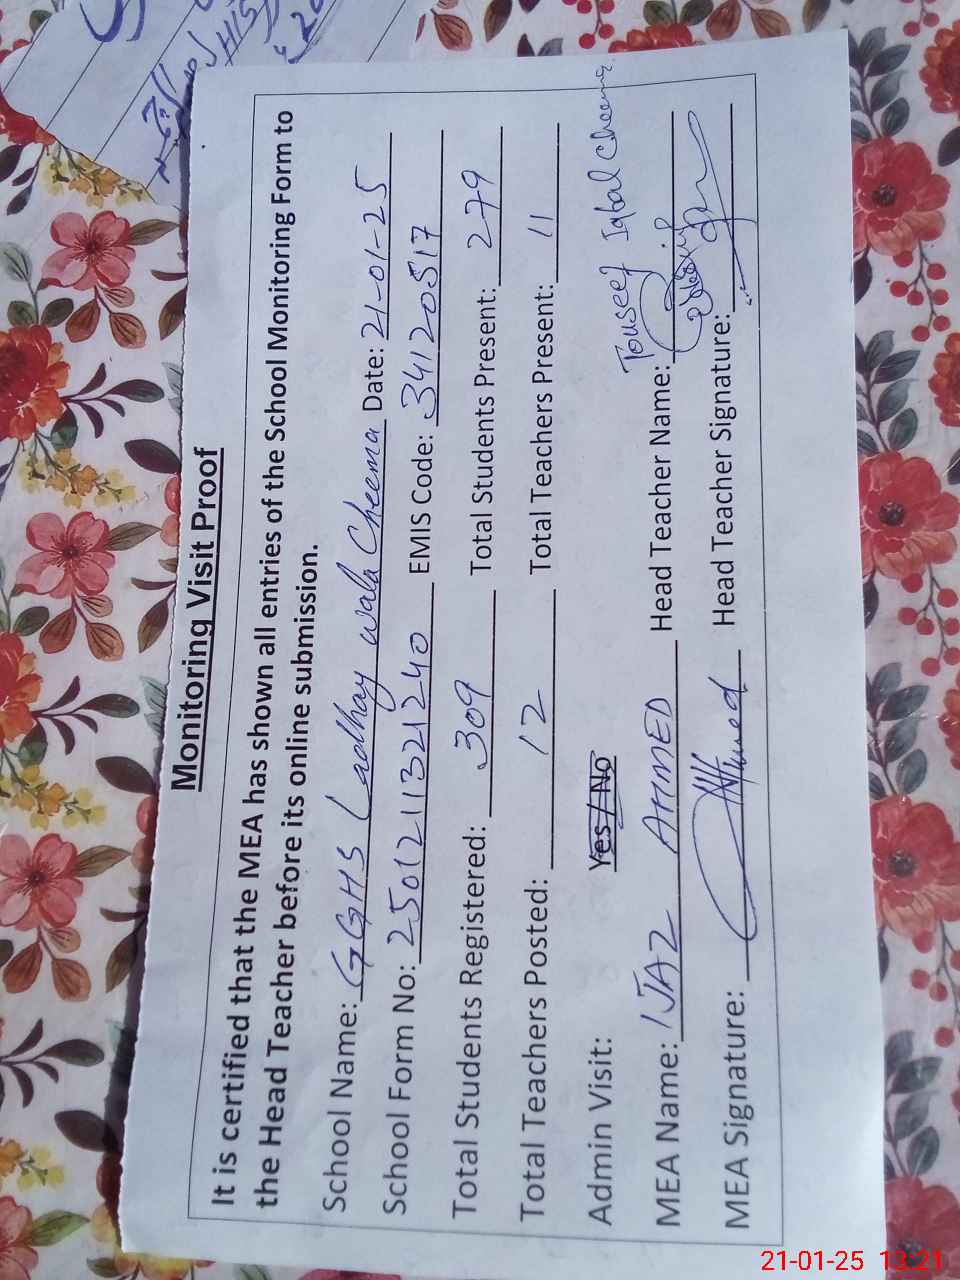 Monitoring Visit Proof
It is certified that the MEA has shown all entries of the School Monitoring Form to
the Head Teacher before its online submission.
School Name: GGHS Ladhay wala Cheema Date: 21-01-25
School Form No: 2501211321240 EMIS Code: 34120517
Total Students Registered: 309 Total Students Present: 279
Total Teachers Posted: 12 Total Teachers Present: 11
Admin Visit: Yes / No
MEA Name: IJAZ AHMED Head Teacher Name: Touseef Iqbal Cheema
MEA Signature: Head Teacher Signature:
21-01-25 13:21